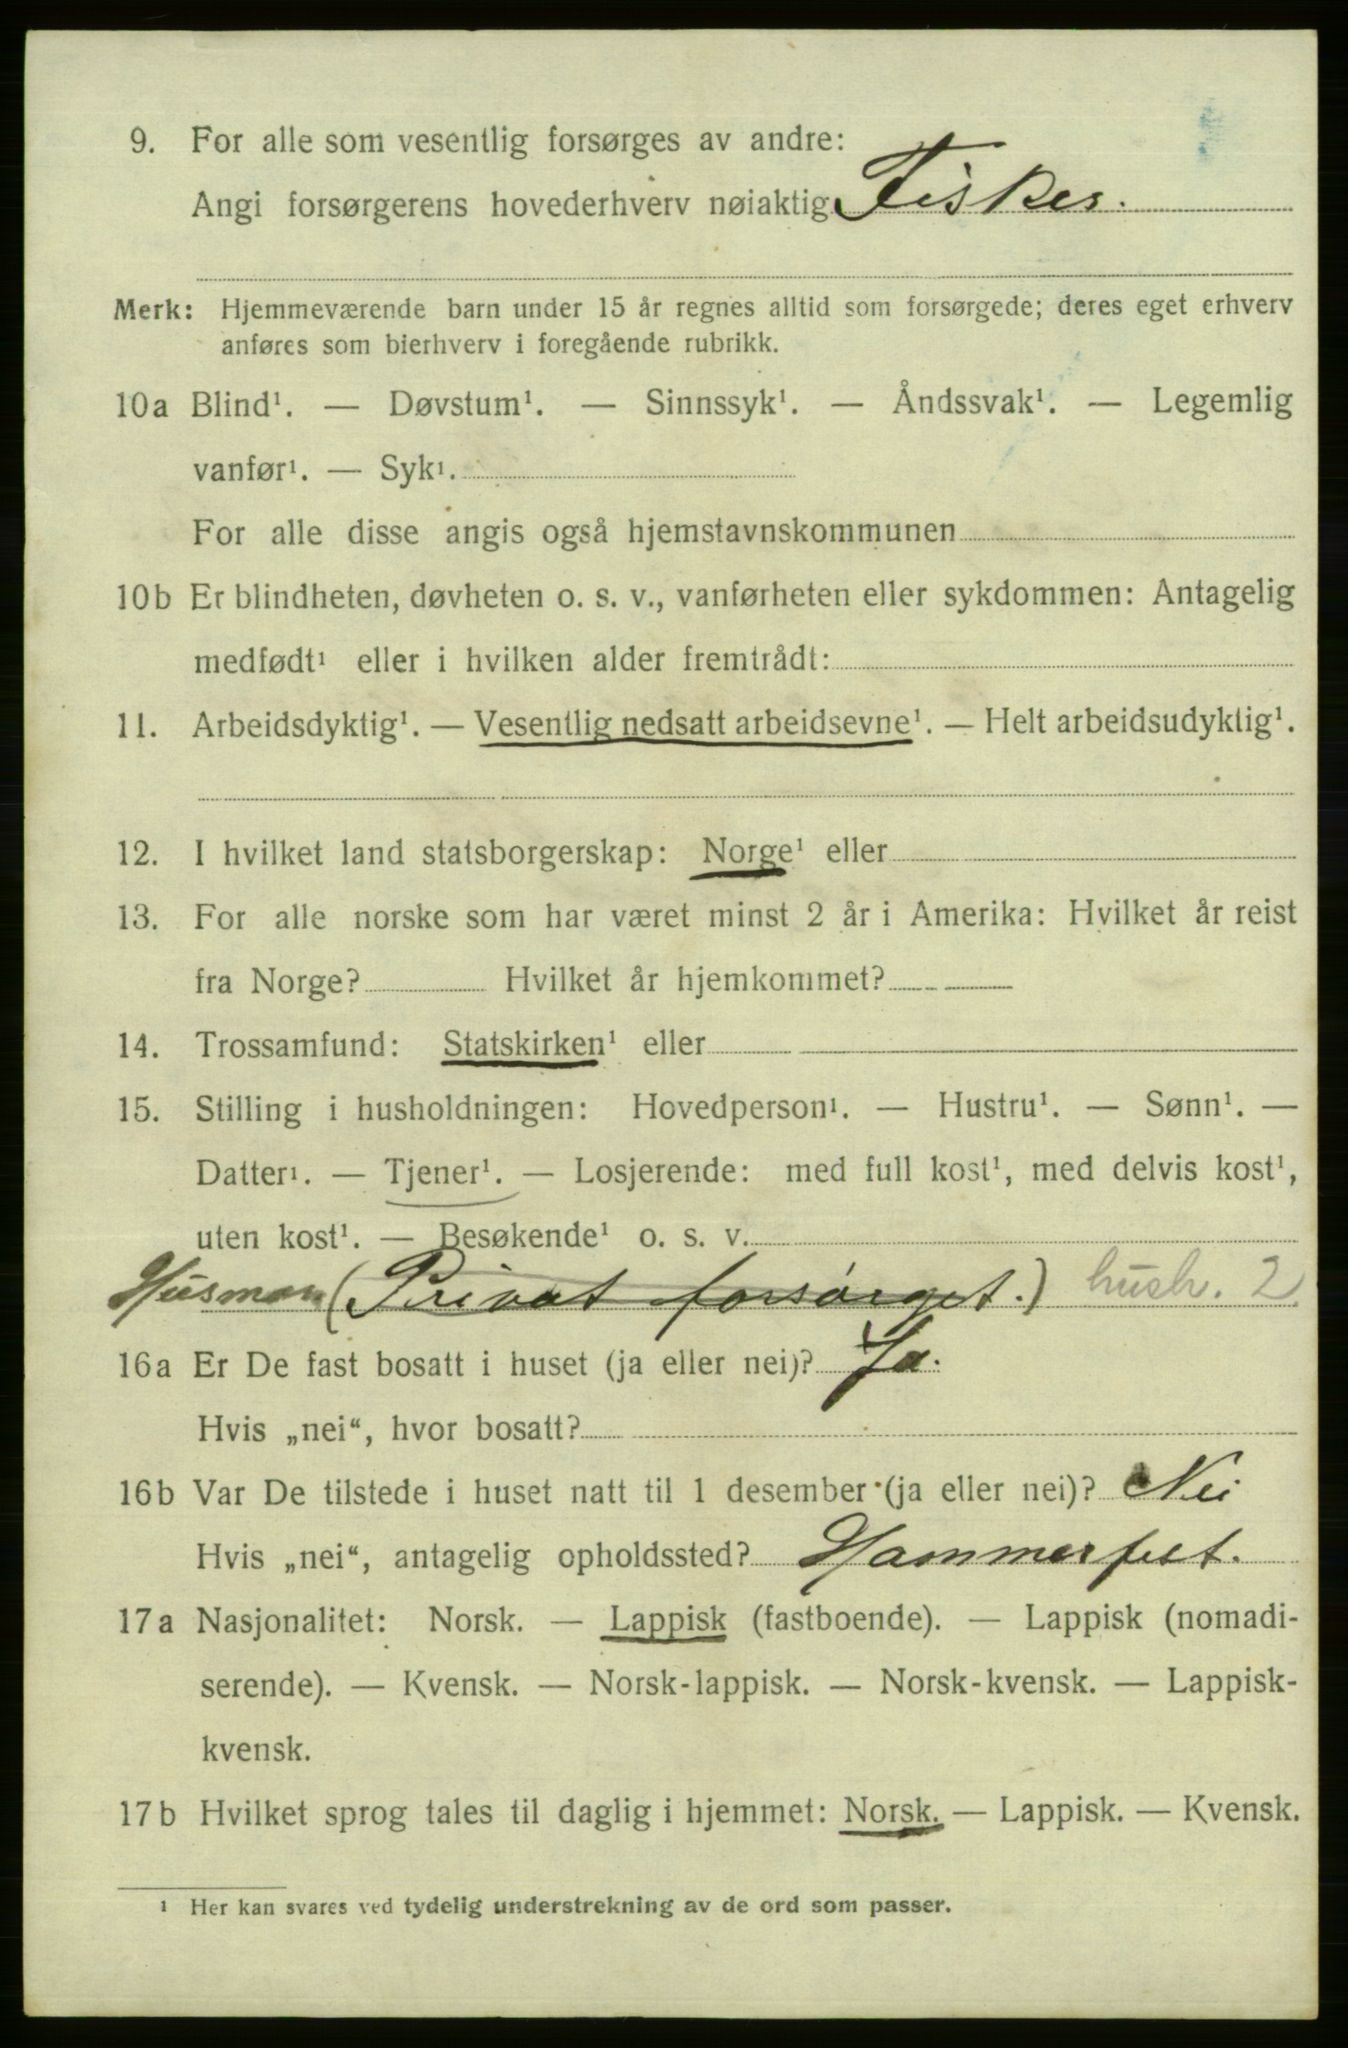 9. For alle som vesentlig forsørges av andre:
Angi forsørgerens hovederhverv nøiaktig Fisker.
Merk: Hjemmeværende barn under 15 år regnes alltid som forsørgede; deres eget erhverv
anføres som bierhverv i foregående rubrikk.
10a Blind¹. — Døvstum¹. — Sinnssyk¹. — Åndssvak¹. — Legemlig
vanfør¹. — Syk¹.
For alle disse angis også hjemstavnskommunen
10b Er blindheten, døvheten o. s. v., vanførheten eller sykdommen: Antagelig
medfødt¹ eller i hvilken alder fremtrådt:
11. Arbeidsdyktig¹. — Vesentlig nedsatt arbeidsevne¹. — Helt arbeidsudyktig¹.
12. I hvilket land statsborgerskap: Norge¹ eller
13. For alle norske som har været minst 2 år i Amerika: Hvilket år reist
fra Norge? Hvilket år hjemkommet?
14. Trossamfund: Statskirken¹ eller
15. Stilling i husholdningen: Hovedperson¹. — Hustru¹. — Sønn¹. —
Datter¹. — Tjener¹. — Losjerende: med full kost¹, med delvis kost¹,
uten kost¹. — Besøkende¹ o. s. v.
Husmor (Privat forsørget.) hush. 2
16a Er De fast bosatt i huset (ja eller nei)? Ja.
Hvis „nei“, hvor bosatt?
16b Var De tilstede i huset natt til 1 desember (ja eller nei)? Nei
Hvis „nei“, antagelig opholdssted? Hammerfest.
17a Nasjonalitet: Norsk. — Lappisk (fastboende). — Lappisk (nomadi-
serende). — Kvensk. — Norsk-lappisk. — Norsk-kvensk. — Lappisk-
kvensk.
17b Hvilket sprog tales til daglig i hjemmet: Norsk. — Lappisk. — Kvensk.
¹ Her kan svares ved tydelig understrekning av de ord som passer.